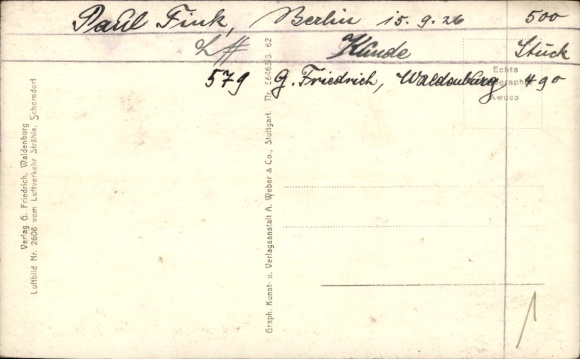 Paul Fink, Berlin 15.9.26 500
Kunde Stück
579 G. Friedrich, Waldenburg, 490
Echte
Awuco
Verlag G. Friedrich, Waldenburg
Luftbild Nr. 2608 vom Luftverkehr Strähle, Schorndorf
Graph. Kunst- u. Verlagsanstalt A. Weber & Co., Stuttgart. Nr. 62